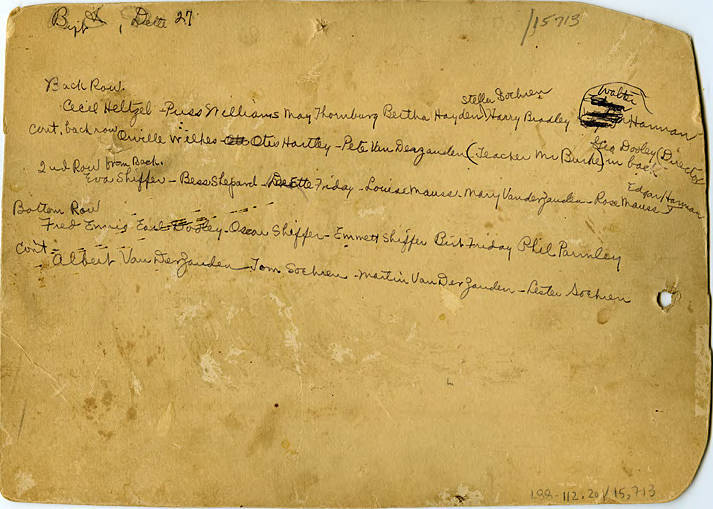 27
/15713
Back Row.
Stella Sochren
Walter
Cecil Heltzel - Puss Williams May Thornburg Bertha Hayden Harry Bradley Hannan
cont. back row Orville Wilkes - Otis Hartley - Pete Van Derzanden (Teacher Mr Burke) in back
Geo Dooley (Director)
2nd Row from Back.
Edgar Hannan
Eva Shiffer - Bess Shepard - DeEtte Friday - Louise Mauss. Mary Vanderzanden - Rose Mauss
Bottom Row
Fred Ennis Earl Dooley - Oscar Shiffer - Emmett Shiffer Birt Friday Phil Parmley
cont -
Albert Van Derzanden - Tom Sochren - Martin Van Der Zanden - Lester Sochren
188-112.20/15,713